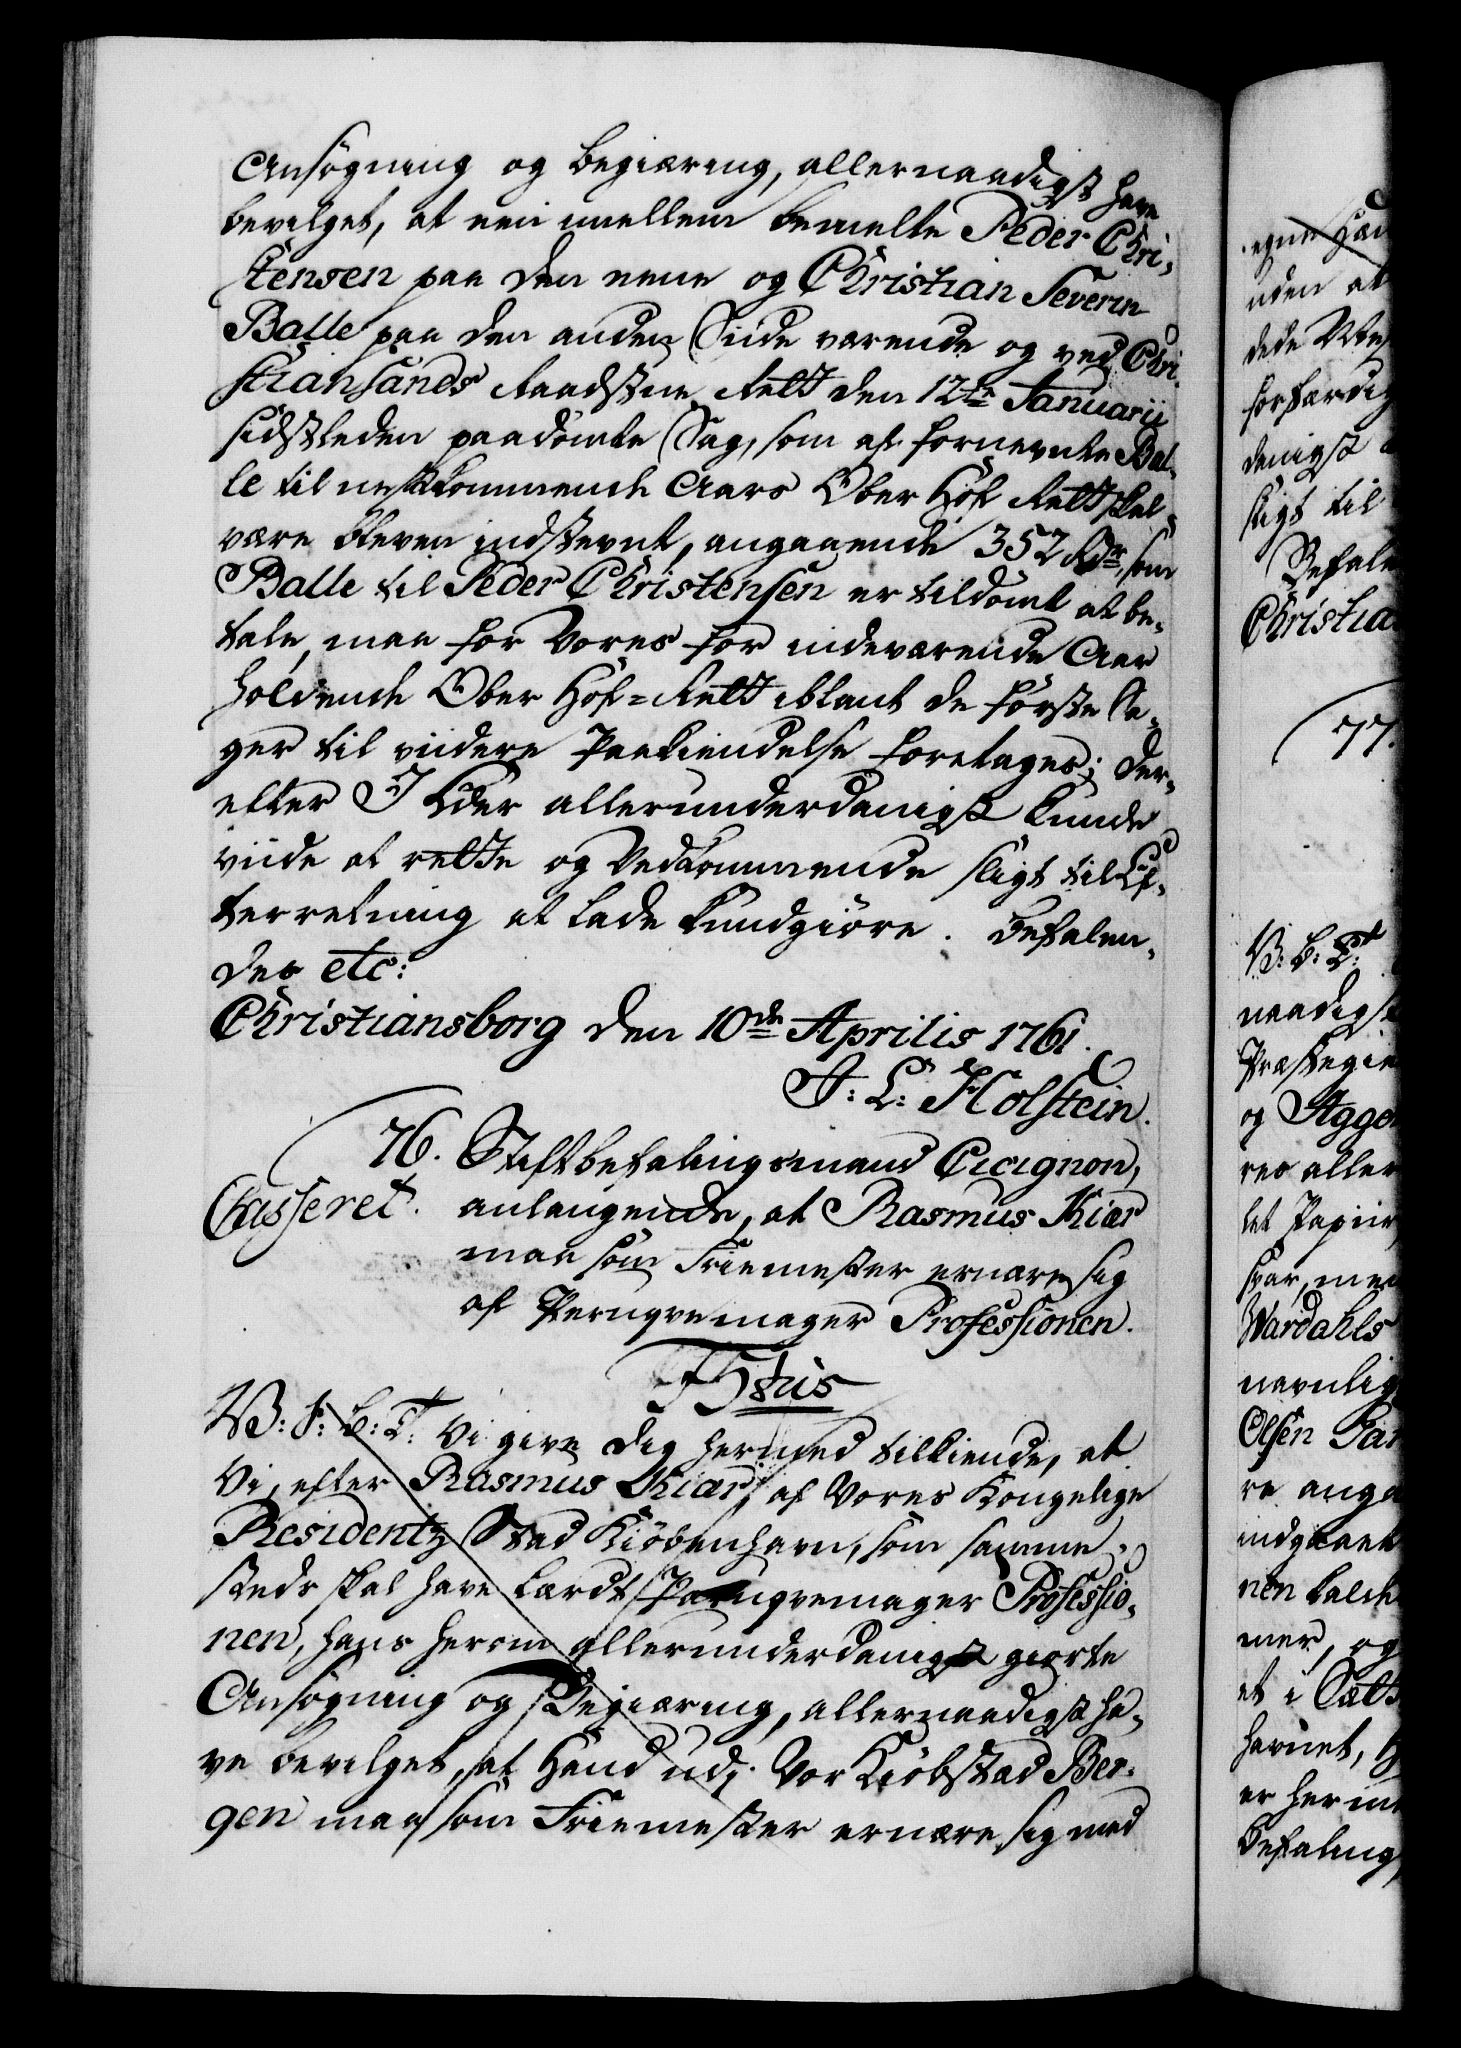 Ansøgning og begiæring, allernaadigst have
bevilget, at een imellem bemelte Peder Chri-
stensen paa den eene og Christian Severin
Balle paa den anden Siide værende og ved Chri-
stiansands Raadstue Rett den 12te Januarii
sidstleden paadømte Sag, som af fornevnte Bal-
le til nestkommende Aars Ober Hof Rett skal
være bleven indstevnt, angaaende 352 Rdr, som
Balle til Peder Christensen er tildømt at be-
tale, maa for Vores for indeværende Aar
holdende Ober Hof-Rett iblant de første Sa-
ger til viidere Paakiendelse foretages; der-
efter I Eder allerunderdanigst kunde
viide at rette og Vedkommende sligt til Ef-
terretning at lade kundgiøre. Befalen-
des etc:
Christiansborg den 10de Aprilis 1761.
J: L: Holstein.
76. Stiftbefalingsmand Cicignon,
Casseret. anlangende, at Rasmus Kiær
maa som Friemester ernære sig
af Peruqvemager Professionen.
F 5tus
V: F: b: T: Vi give dig hermed tilkiende, at
Vi, efter Rasmus Kiær, af Vores Kongelige
Residentz Stad Kiøbenhavn, som samme-
steds skal have lærdt Paruqvemager Professio-
nen, hans herom allerunderdanigst giorte
Ansøgning og Begiæring, allernaadigst ha-
ve bevilget, at Hand udi Vor Kiøbstad Ber-
gen maa som Friemester ernære sig med
egne Hæn
uden at
dede Wes
forfærdig
danigst
sligt til
Befale
Christia
77.
V: b: T:
naadigst
Præstegie
og Agger
res aller
let Papiir
svar, med
Wardahls
navnlig
Olsen Gar
re anga
indgaaet
nen
mer, og
et i Sæt
havnet,
er her in
Befaling,